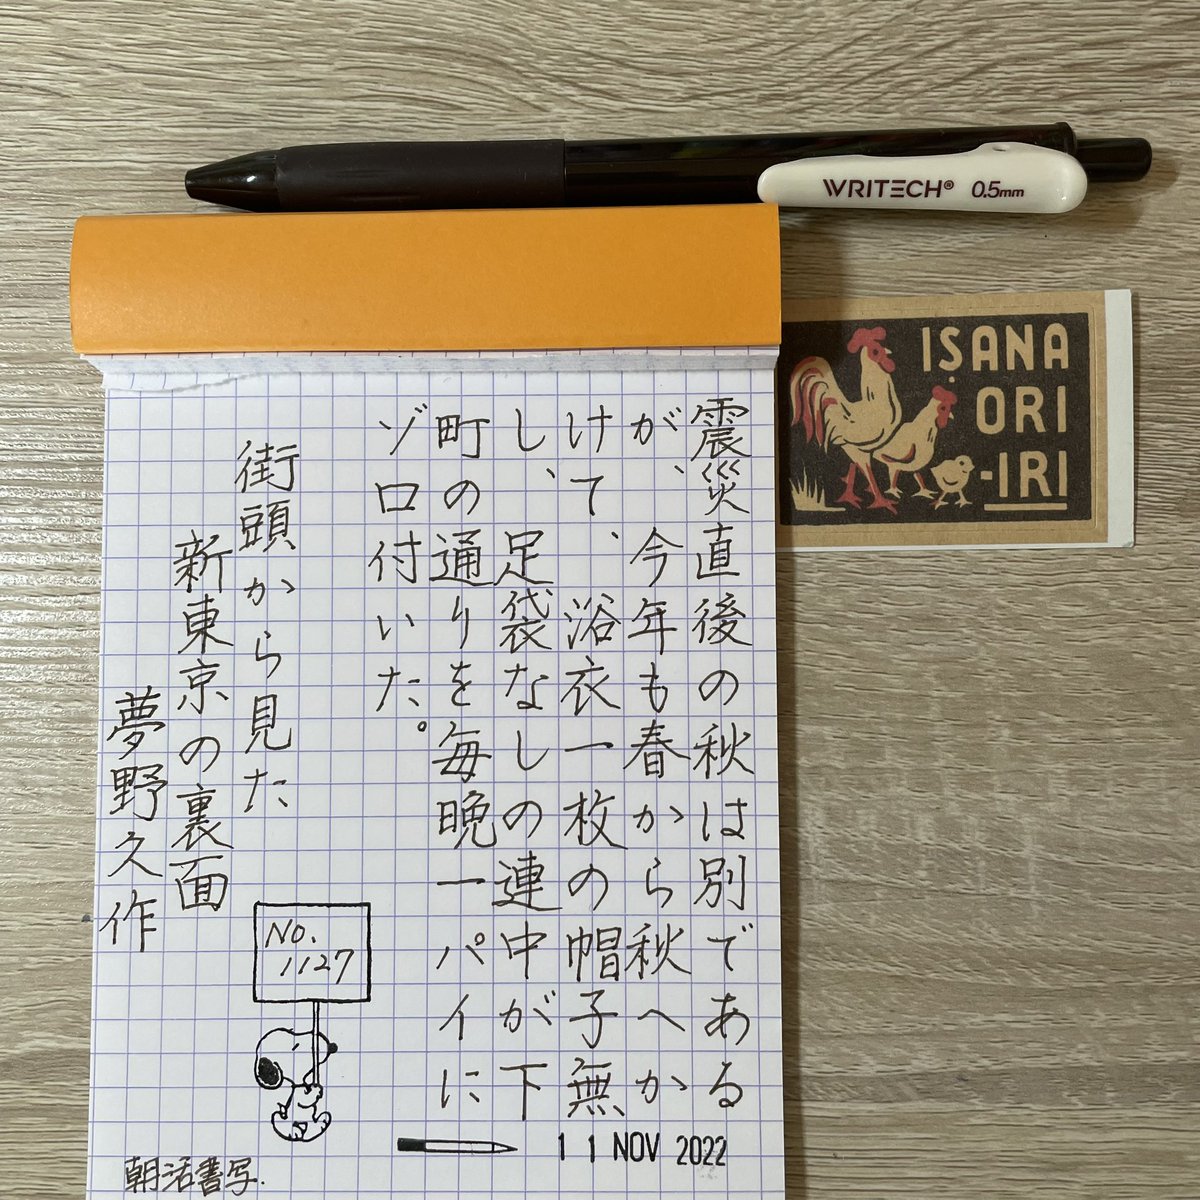 WRITECH® 0.5mm
IṢANA
ORI
-IRI
震災直後の秋は別である
が、今年も春から秋へか
けて、浴衣一枚の帽子無
し、足袋なしの連中が下
町の通りを毎晩一パイに
ゾロ付いた。
街頭から見た
新東京の裏面
夢野久作
No.
1127
11 NOV 2022
朝活書写.